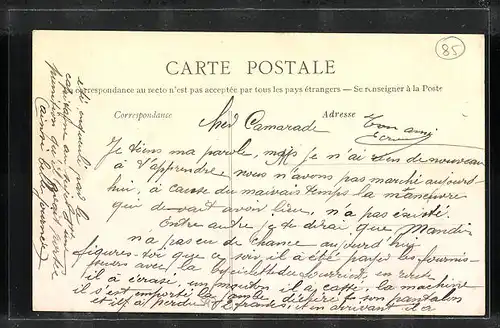 85
CARTE POSTALE
La correspondance au recto n'est pas acceptée par tous les pays étrangers — Se renseigner à la Poste
Correspondance
Adresse
Ton ami
Cher Camarade
Je tiens ma parole, mais je n'ai rien de nouveau
à t'apprendre nous n'avons pas marché aujourd-
hui, à cause du mauvais temps la manœuvre
qui devait avoir lieu, n'a pas existé.
Entre autre je te dirai que Mandin
n'a pas eu de chance aujourd'hui
figures-toi que ce soir, il a été par les fournis-
seurs avec la bicyclette du en route
il a écrasé un mouton il a cassé la machine
il s'est emporté la jambe déchiré son pantalon
et il a perdu 2 francs, et en arrivant il a
été par le
capitaine
punition qui